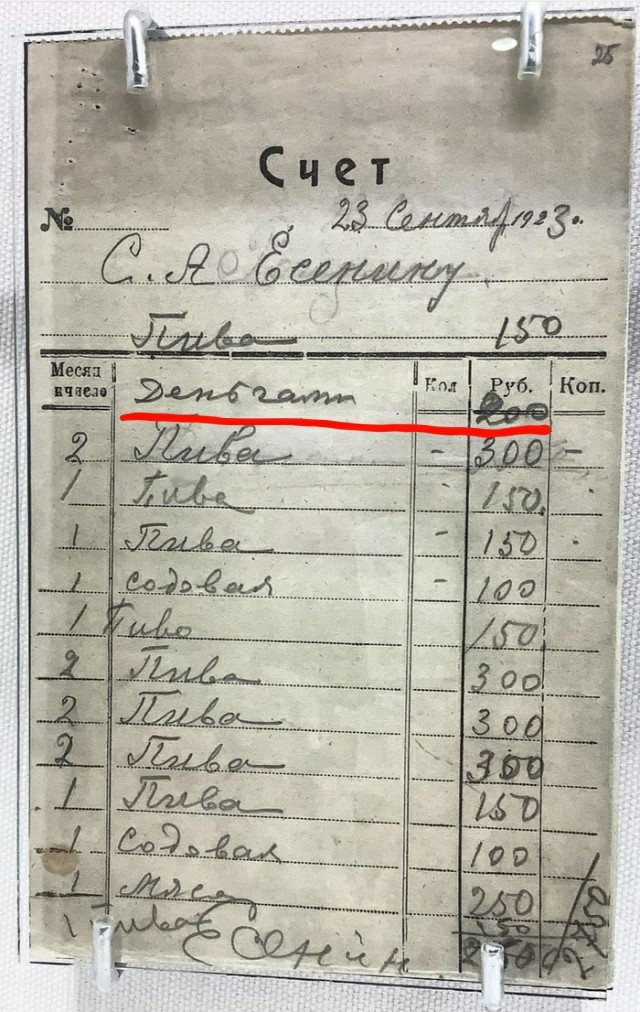 25
Счет
№ 23 Сентяб 1923г.
С. А Есенину
Пива 150
Месяц и число Деньгами Кол Руб. Коп.
200
2 Пива - 300 -
1 Пива - 150.
1 Пива - 150
1 содовая - 100
1 Пиво 150
2 Пива 300
2 Пива 300
2 Пива 300
1 Пива 150
1 Содовая 100
1 Мясо 250
1 Пива 150
Есенин